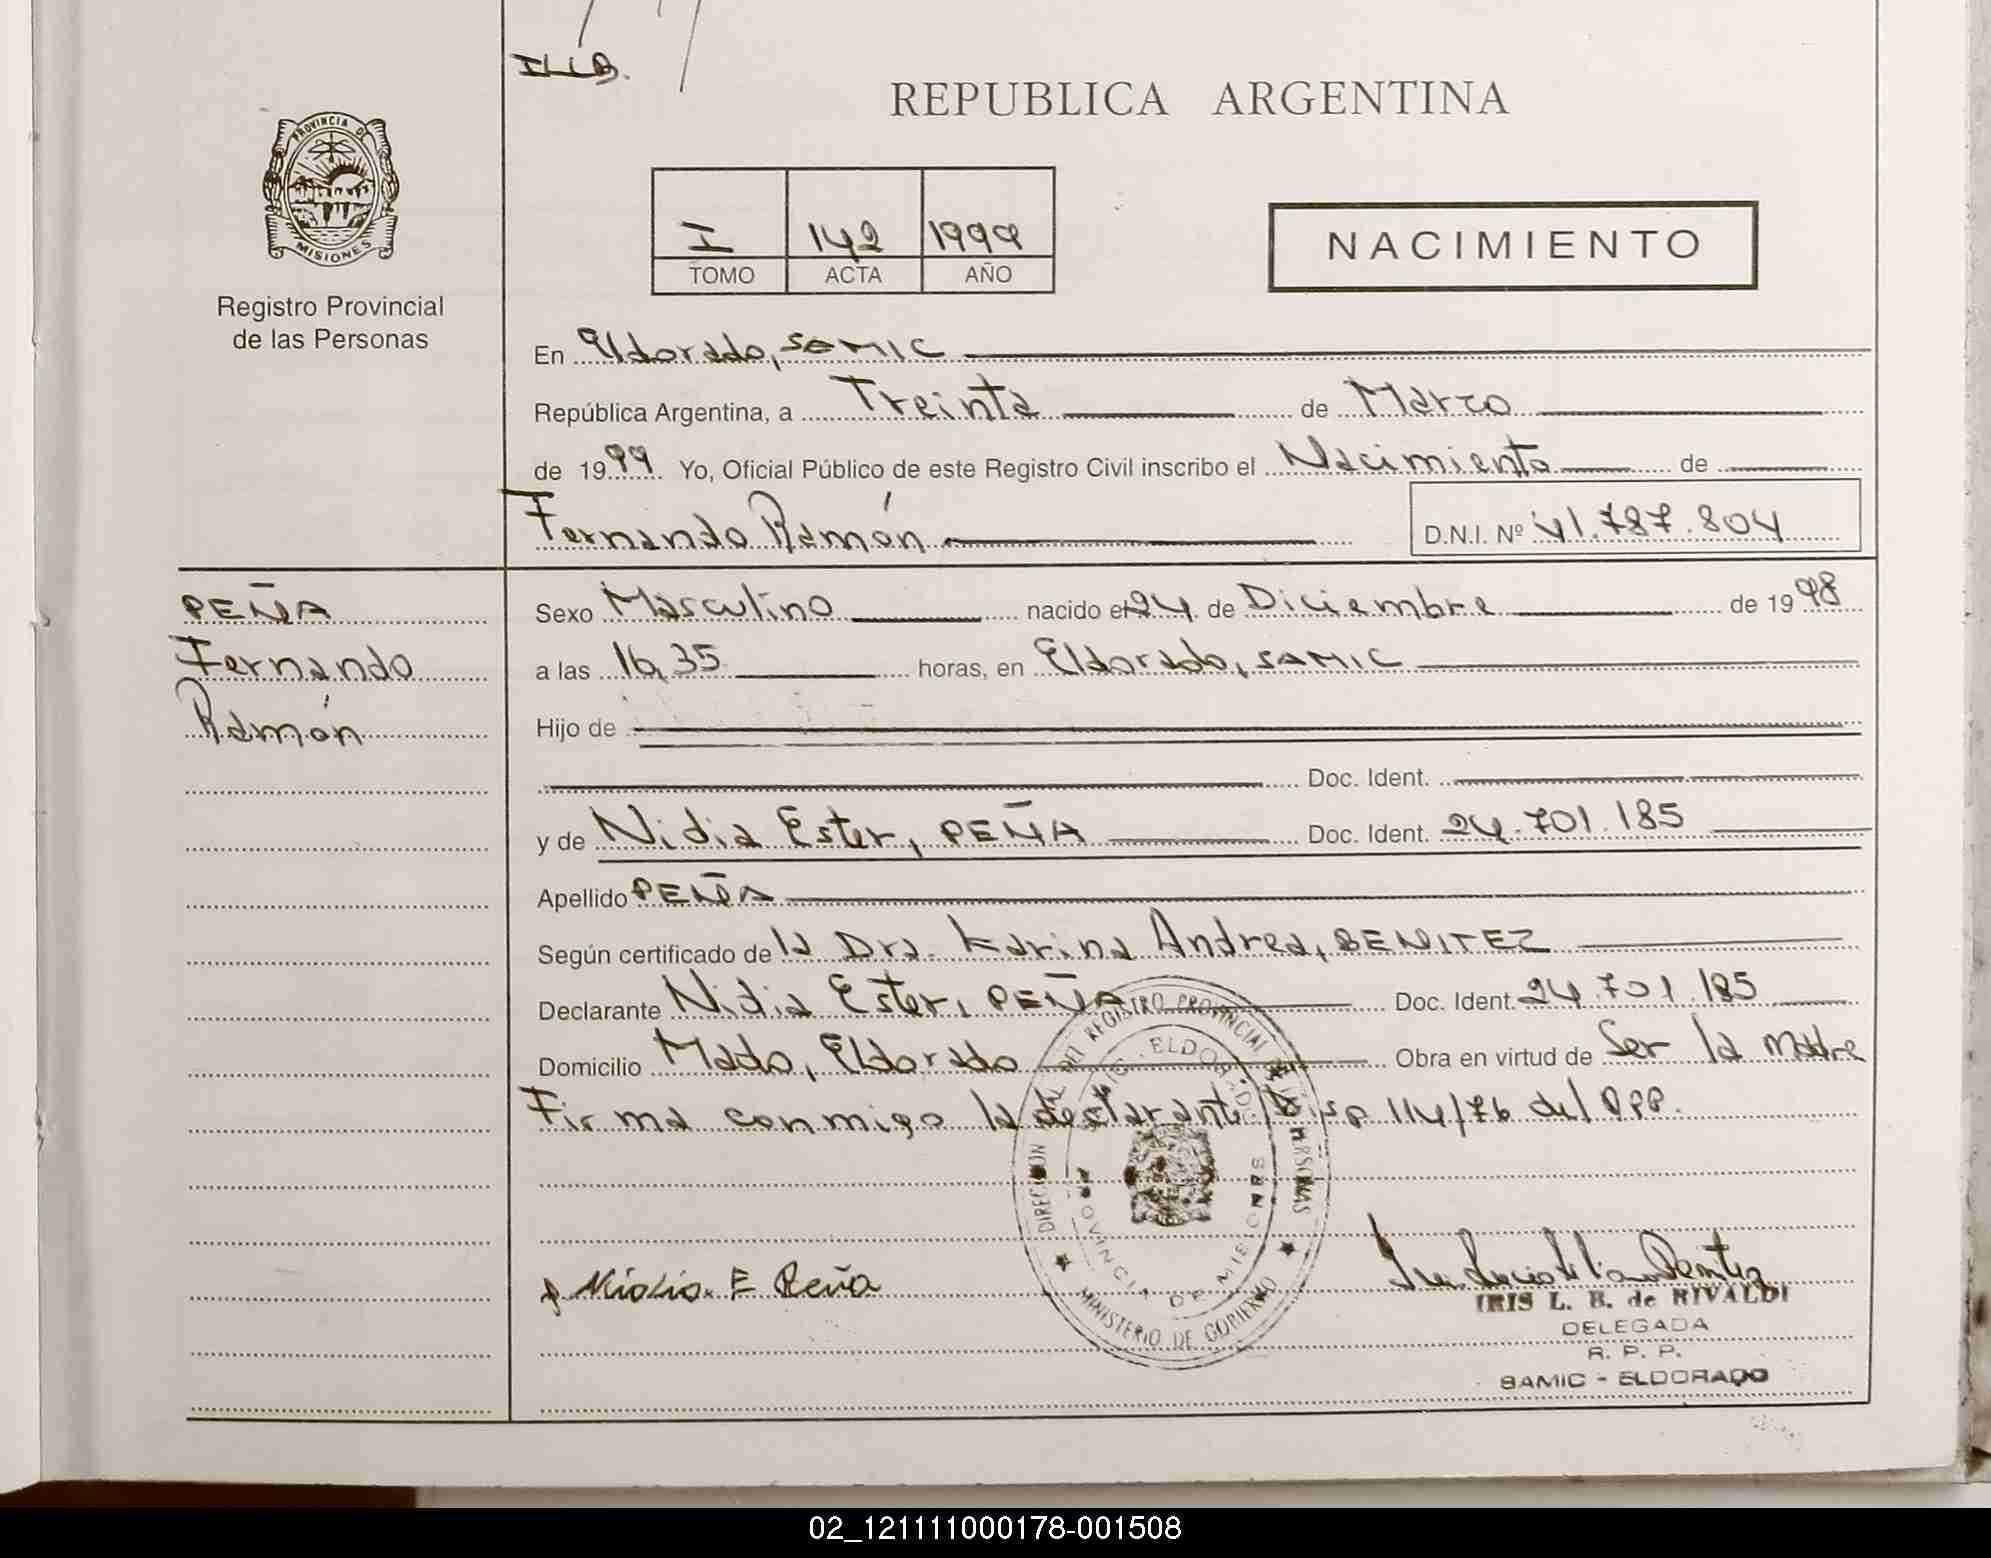 ILLB.
REPUBLICA ARGENTINA
PROVINCIA DE
MISIONES
Registro Provincial
de las Personas
I 142 1999
TOMO ACTA AÑO
NACIMIENTO
En Eldorado, SAMIC
República Argentina, a Treinta de Marzo
de 1999. Yo, Oficial Público de este Registro Civil inscribo el Nacimiento de
Fernando Ramón D.N.I. Nº 41.787.804
PEÑA
Fernando
Ramón
Sexo Masculino nacido el 24 de Diciembre de 1998
a las 16,35 horas, en Eldorado, SAMIC
Hijo de
Doc. Ident.
y de Nidia Ester, PEÑA Doc. Ident. 24.701.185
Apellido PEÑA
Según certificado de la Dra. Karina Andrea, BENITEZ
Declarante Nidia Ester, PEÑA Doc. Ident. 24.701.185
Domicilio Mado, Eldorado Obra en virtud de Ser la madre
Firma conmigo la declarante Disp 114/76 del RPP.
DIRECCION DEL REGISTRO PROVINCIAL DE LAS PERSONAS
ELDORADO
PROVINCIA DE MISIONES
MINISTERIO DE GOBIERNO
Nidia E Peña
IRIS L. B. de RIVALDI
DELEGADA
R. P. P.
SAMIC - ELDORADO
02_121111000178-001508